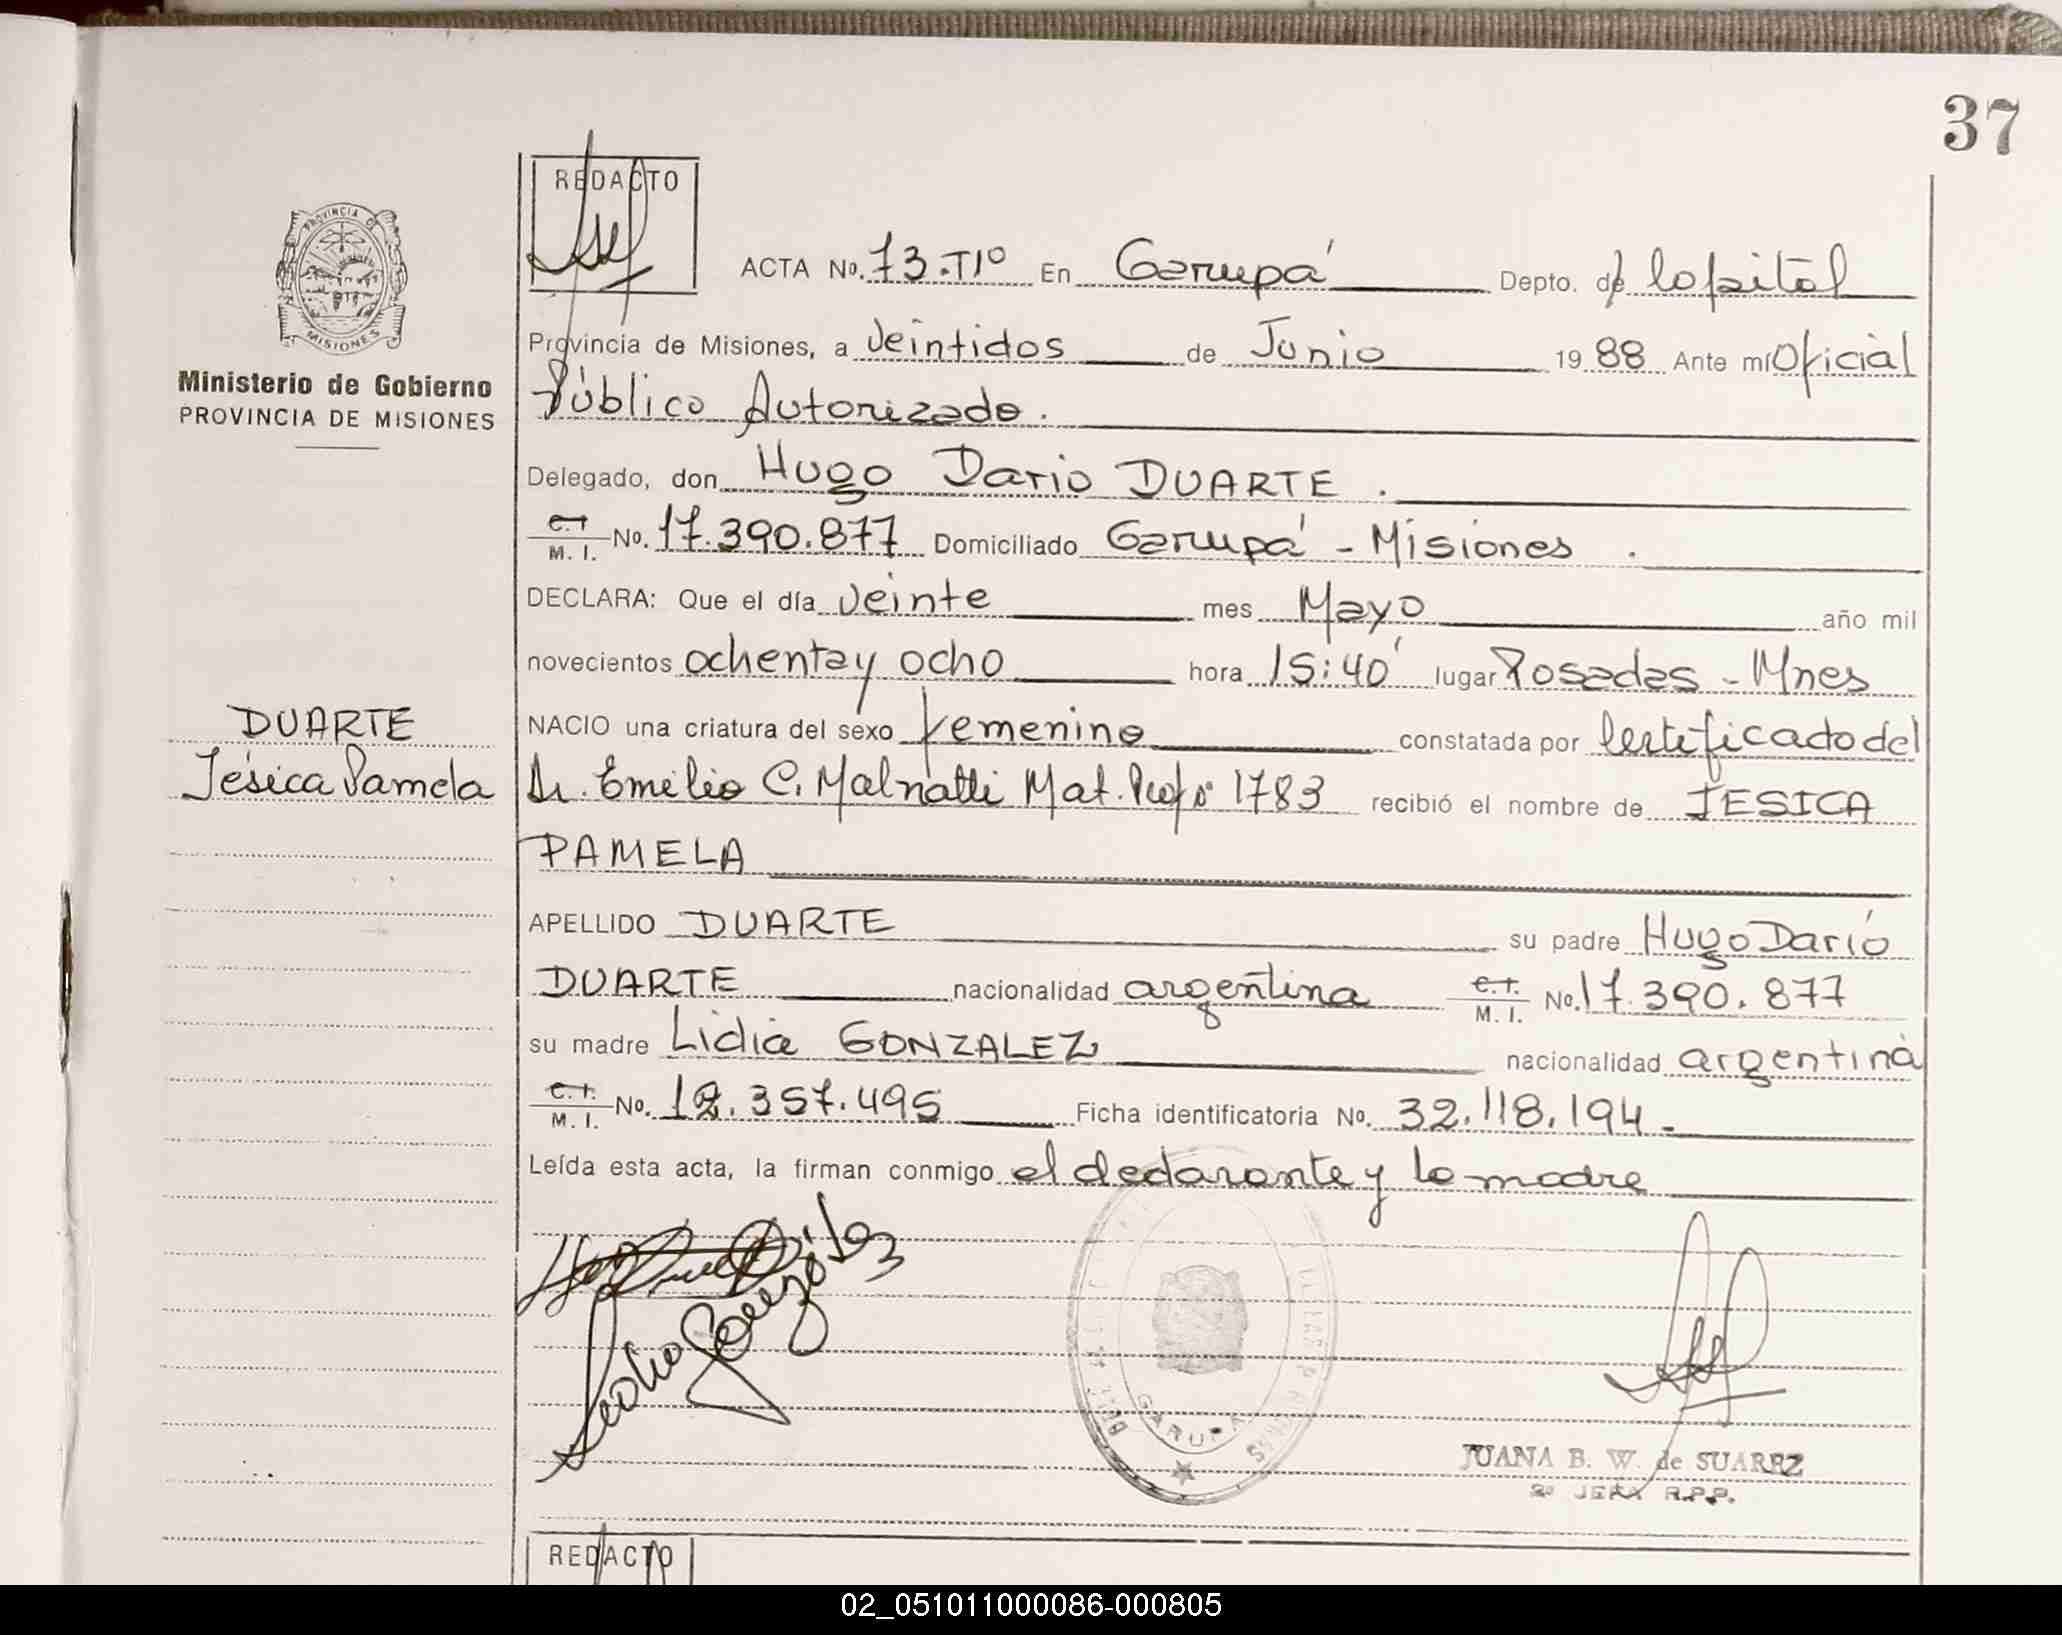 37
REDACTO
PROVINCIA DE
MISIONES
Ministerio de Gobierno
PROVINCIA DE MISIONES
ACTA No. 73.TIº En Garupá Depto. de Capital
Provincia de Misiones, a Veintidos de Junio 19 88 Ante mí Oficial
Público Autorizado.
Delegado, don Hugo Dario DUARTE.
C.I. M. I. No. 17.390.877 Domiciliado Garupá - Misiones.
DECLARA: Que el día veinte mes Mayo año mil
novecientos ochenta y ocho hora 15:40' lugar Posadas - Mnes
DUARTE
Jésica Pamela
NACIO una criatura del sexo femenino constatada por Certificado del
Dr. Emilio C. Malnatti Mat. Prof. 1783 recibió el nombre de JESICA
PAMELA
APELLIDO DUARTE su padre Hugo Darío
DUARTE nacionalidad argentina C.I. M. I. No. 17.390.877
su madre Lidia GONZALEZ nacionalidad argentina
C.I. M. I. No. 12.357.495 Ficha identificatoria No. 32.118.194.-
Leída esta acta, la firman conmigo el declarante y la madre
GARUPA
JUANA B. W. de SUAREZ
2º JEFA R.P.P.
REDACTO
02_051011000086-000805